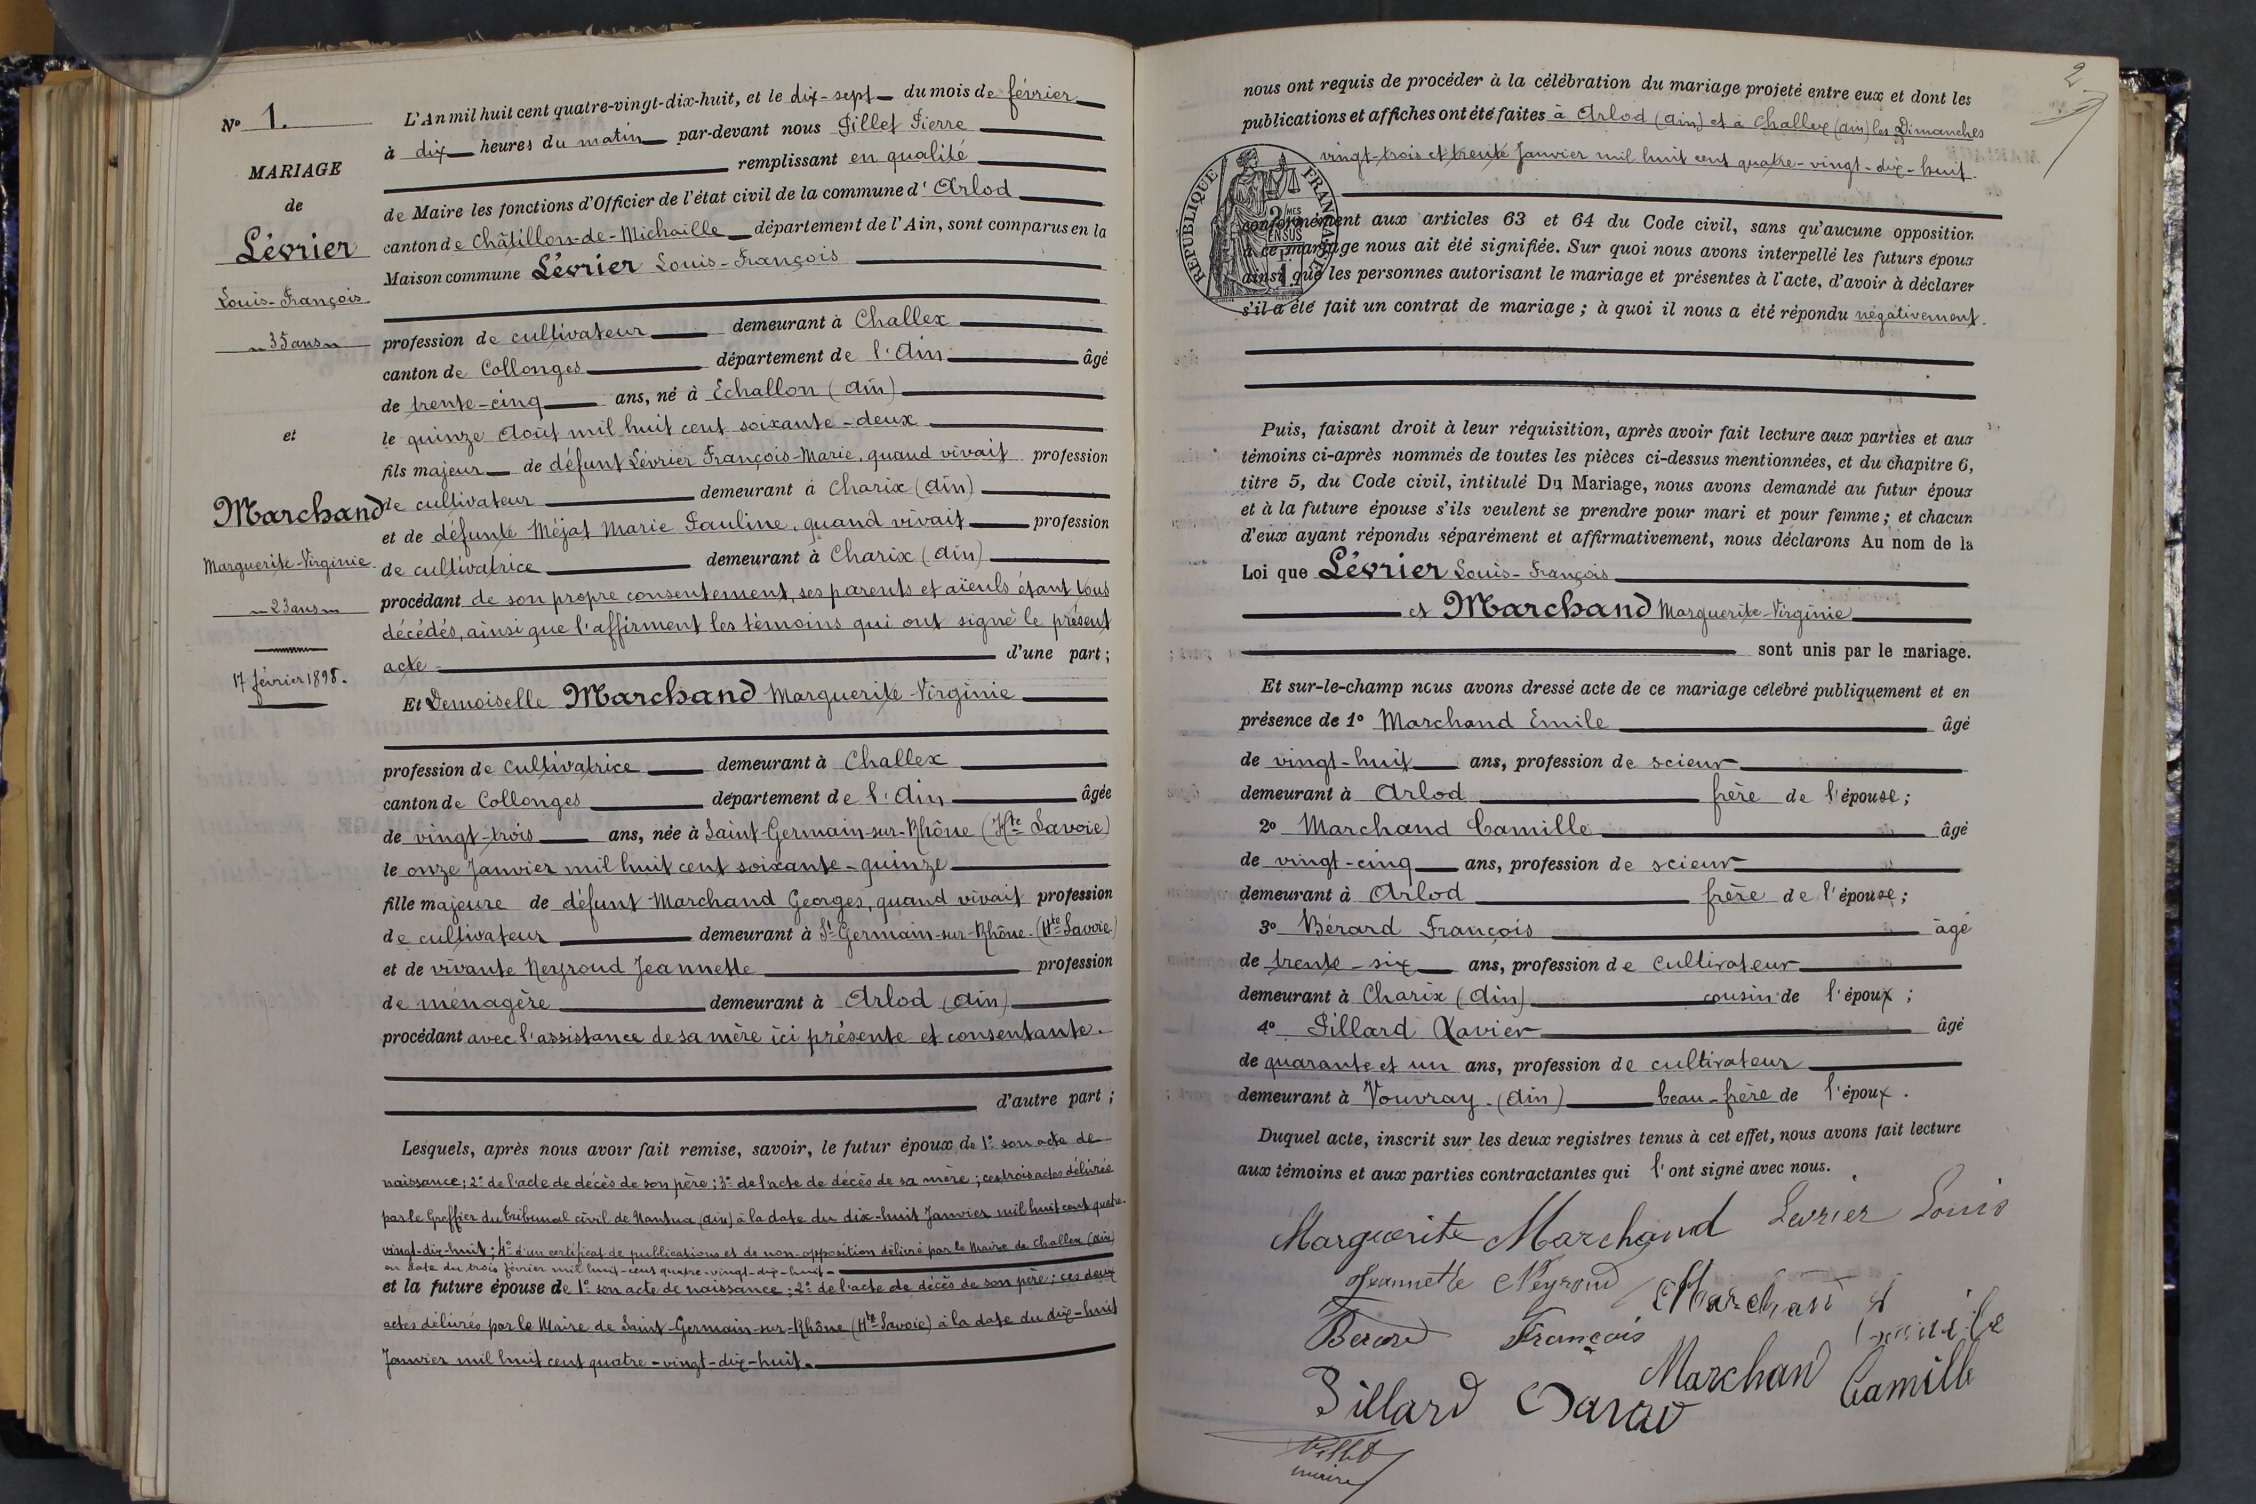 Nº 1.
MARIAGE
de
Lévrier
Louis-François
35 ans
et
Marchand
Marguerite-Virginie
23 ans
17 février 1898.
L'An mil huit cent quatre-vingt-dix-huit, et le dix-sept du mois de février
à dix heures du matin par-devant nous Pillet Pierre
remplissant en qualité
de Maire les fonctions d'Officier de l'état civil de la commune d'Arlod
canton de Châtillon-de-Michaille département de l'Ain, sont comparus en la
Maison commune Lévrier Louis-François
profession de cultivateur demeurant à Challex
canton de Collonges département de l'Ain âgé
de trente-cinq ans, né à Echallon (Ain)
le quinze Août mil huit cent soixante-deux
fils majeur de défunt Lévrier François-Marie, quand vivait profession
de cultivateur demeurant à Charix (Ain)
et de défunte Méjat Marie Pauline, quand vivait profession
de cultivatrice demeurant à Charix (Ain)
procédant de son propre consentement, ses parents et aïeuls étant tous
décédés, ainsi que l'affirment les témoins qui ont signé le présent
acte d'une part ;
Et Demoiselle Marchand Marguerite-Virginie
profession de cultivatrice demeurant à Challex
canton de Collonges département de l'Ain âgée
de vingt-trois ans, née à Saint-Germain-sur-Rhône (Hte Savoie)
le onze Janvier mil huit cent soixante-quinze
fille majeure de défunt Marchand Georges, quand vivait profession
de cultivateur demeurant à St-Germain-sur-Rhône (Hte Savoie)
et de vivante Neyroud Jeannette profession
de ménagère demeurant à Arlod (Ain)
procédant avec l'assistance de sa mère ici présente et consentante.
d'autre part ;
Lesquels, après nous avoir fait remise, savoir, le futur époux de 1º son acte de
naissance ; 2º de l'acte de décès de son père ; 3º de l'acte de décès de sa mère ; ces trois actes délivrés
par le Greffier du tribunal civil de Nantua (Ain) à la date du dix-huit Janvier mil huit cent quatre-
vingt-dix-huit ; 4º d'un certificat de publications et de non-opposition délivré par le Maire de Challex (Ain)
en date du trois février mil huit-cent quatre-vingt-dix-huit
et la future épouse de 1º son acte de naissance ; 2º de l'acte de décès de son père ; ces deux
actes délivrés par le Maire de Saint-Germain-sur-Rhône (Hte-Savoie) à la date du dix-huit
Janvier mil huit cent quatre-vingt-dix-huit.
2
nous ont requis de procéder à la célébration du mariage projeté entre eux et dont les
publications et affiches ont été faites à Arlod (Ain) et à Challex (Ain) les Dimanches
vingt-trois et trente Janvier mil huit cent quatre-vingt-dix-huit.
RÉPUBLIQUE FRANÇAISE
conformément aux articles 63 et 64 du Code civil, sans qu'aucune opposition
à ce mariage nous ait été signifiée. Sur quoi nous avons interpellé les futurs époux
ainsi que les personnes autorisant le mariage et présentes à l'acte, d'avoir à déclarer
s'il a été fait un contrat de mariage ; à quoi il nous a été répondu négativement.
Puis, faisant droit à leur réquisition, après avoir fait lecture aux parties et aux
témoins ci-après nommés de toutes les pièces ci-dessus mentionnées, et du chapitre 6,
titre 5, du Code civil, intitulé Du Mariage, nous avons demandé au futur époux
et à la future épouse s'ils veulent se prendre pour mari et pour femme ; et chacun
d'eux ayant répondu séparément et affirmativement, nous déclarons Au nom de la
Loi que Lévrier Louis-François
et Marchand Marguerite-Virginie
sont unis par le mariage.
Et sur-le-champ nous avons dressé acte de ce mariage célébré publiquement et en
présence de 1º Marchand Emile âgé
de vingt-huit ans, profession de scieur
demeurant à Arlod frère de l'épouse ;
2º Marchand Camille âgé
de vingt-cinq ans, profession de scieur
demeurant à Arlod frère de l'épouse ;
3º Bérard François âgé
de trente-six ans, profession de cultivateur
demeurant à Charix (Ain) cousin de l'époux ;
4º Pillard Xavier âgé
de quarante et un ans, profession de cultivateur
demeurant à Vouvray (Ain) beau-frère de l'époux.
Duquel acte, inscrit sur les deux registres tenus à cet effet, nous avons fait lecture
aux témoins et aux parties contractantes qui l'ont signé avec nous.
Marguerite Marchand Levrier Louis
Jeannette Neyroud Marchand Emile
Berard François
Marchand Camille
Pillard
Pillet
maire